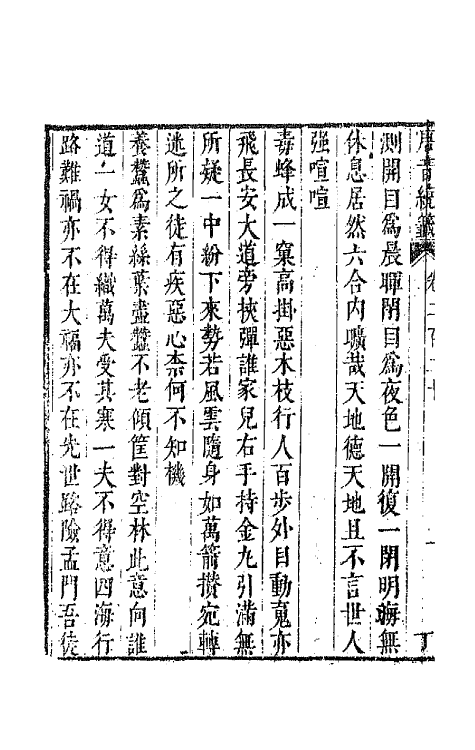 唐音統籤 卷二百二十
測開目為晨暉閉目為夜色一開復一閉明晦無
休息居然六合內曠哉天地德天地且不言世人
强喧喧
毒蜂成一窠高掛惡木枝行人百步外目動䰟亦
飛長安大道旁挾彈誰家兒右手持金九引滿無
所疑一中紛下來勢若風雲隨身如萬箭攅宛轉
迷所之徒有疾惡心柰何不知機
養蠶為素絲葉盡蠶不老傾筐對空林此意向誰
道一女不得織萬夫受其寒一夫不得意四海行
路難禍亦不在大福亦不在先世路險孟門吾徒